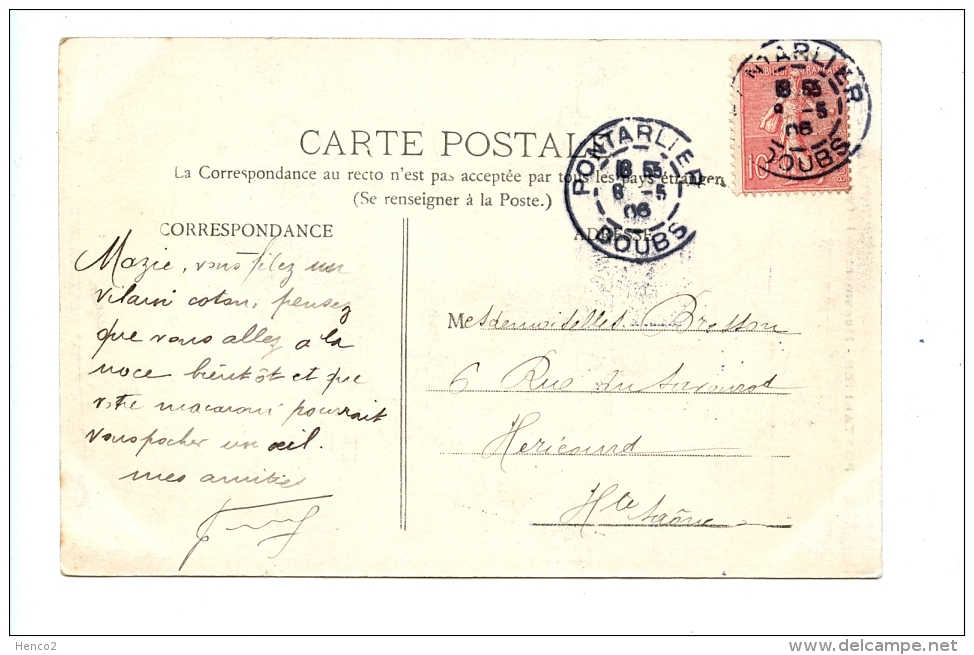 CARTE POSTALE
La Correspondance au recto n'est pas acceptée par tous les pays étrangers
(Se renseigner à la Poste.)
CORRESPONDANCE
ADRESSE
PONTARLIER
18 55
8 -5
06
DOUBS
PONTARLIER
18 55
-5
06
DOUBS
10
Mazie, vous filez un
vilain coton, pensez
que vous allez a la
noce bientôt et que
votre macaroni pourrait
vous pocher un œil.
mes amitiés
Mesdemoiselles Bresson
6 Rue du
Hericourt
Hte Saône
Henco2
www.delcampe.net